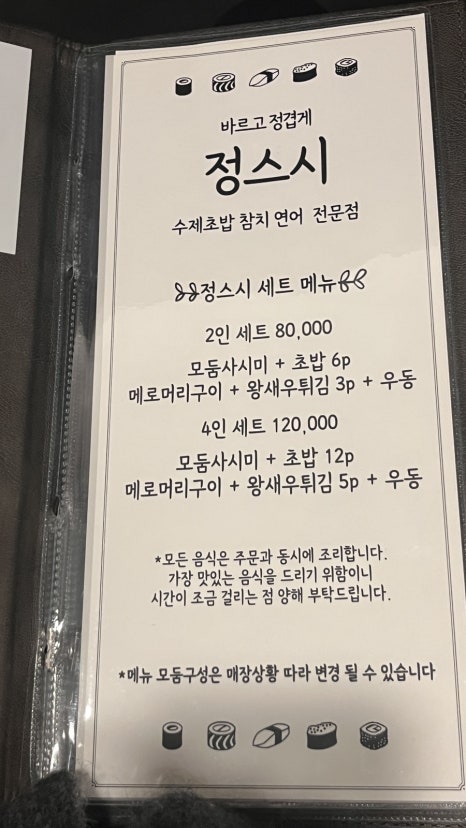 바르고 정겹게
정스시
수제초밥 참치 연어 전문점
정스시 세트 메뉴
2인 세트 80,000
모둠사시미 + 초밥 6p
메로머리구이 + 왕새우튀김 3p + 우동
4인 세트 120,000
모둠사시미 + 초밥 12p
메로머리구이 + 왕새우튀김 5p + 우동
*모든 음식은 주문과 동시에 조리합니다.
가장 맛있는 음식을 드리기 위함이니
시간이 조금 걸리는 점 양해 부탁드립니다.
*메뉴 모둠구성은 매장상황 따라 변경 될 수 있습니다